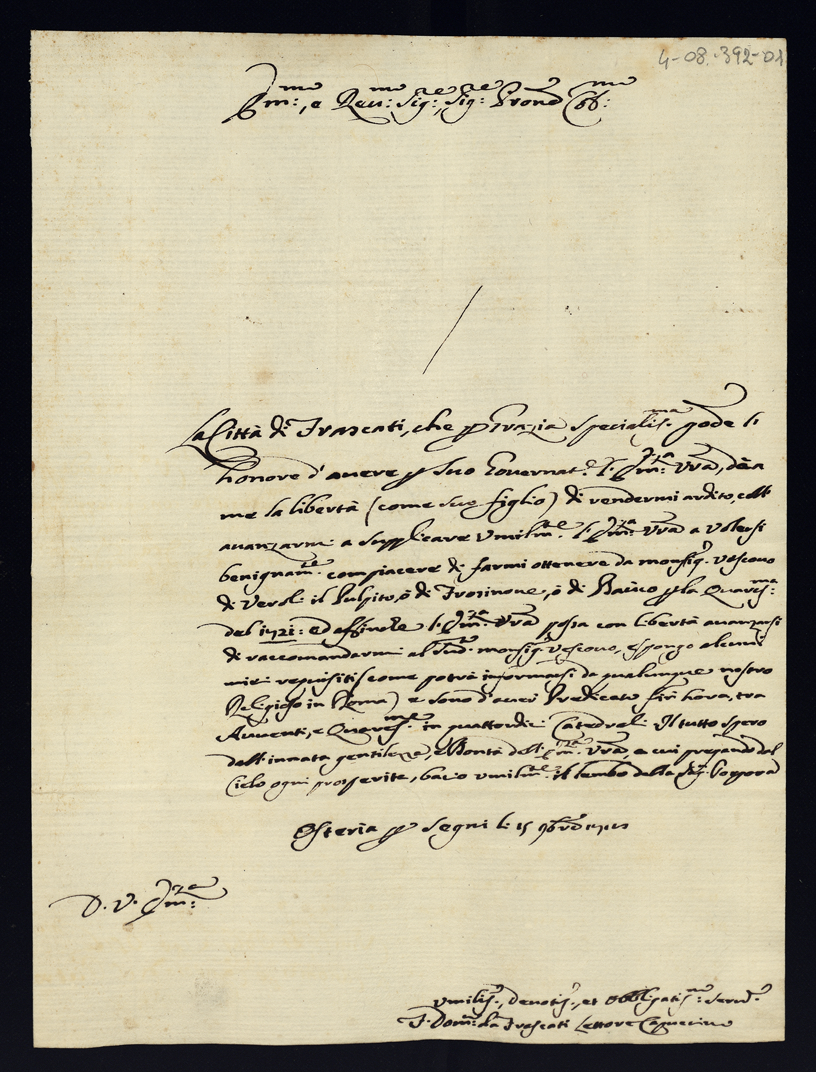 4-08-392-01
Em:mo, e Reu:mo Sig:re, Sig:re Prone Cob:mo
La Città di Frascati, che p Grazia specialis.ma gode l'
honore d'auere p suo Gouernat.e l' Em:za Vra, dà a
me la libertà (come suo figlio) di rendermi ardito, ed
auanzarmi a supplicare umilm.te l' Em:za Vra a volersi
benignam.te compiacere di farmi ottenere da monsig.r Vescouo
di Veroli il Pulpito, ò di Frosinone, ò di Bauco p la Quares:ma
del 1721: ed affinche l' Em:za Vra possa con libertà auanzarsi
di raccomandarmi al Sud.o monsig.r Vescouo, espongo alcuni
miei requisiti (come potrà informarsi da qualunque nostro
Religioso in Roma) e sono d'auer Predicato fin hora, tra
Auuenti, e Quares.me in quattordici Catedrali. Il tutto spero
dall' innata gentilezza, e Bontà dell' Em:za Vra, a cui pregando dal
Cielo ogni prosperità, bacio umilm.te il lembo della Sag.ra Porpora
Osteria p Segni li 15 9bre
D. V. Em:za
Umilis.o, deuotis.o, et Obbligatis.mo Seru.e
F. Dom.co da Frascati Lettore Capuccino